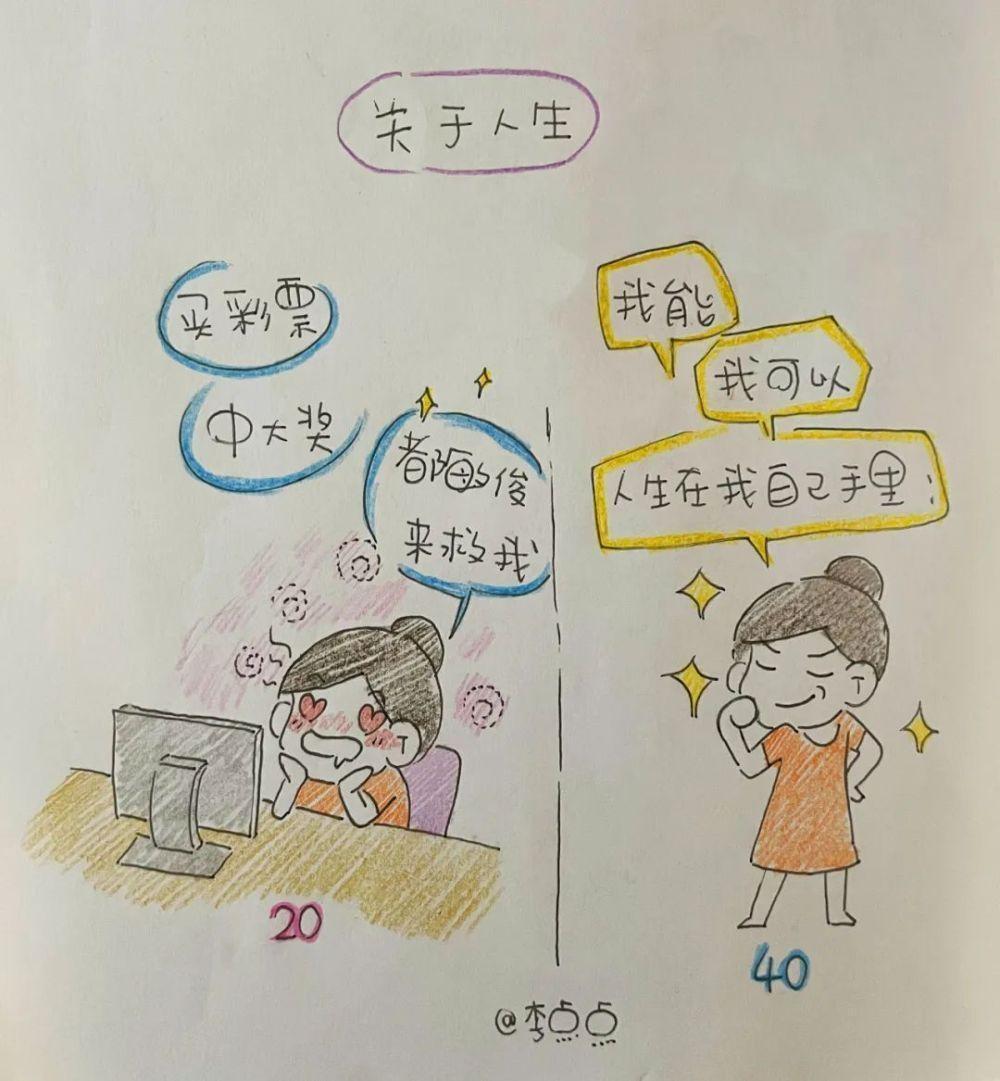 关于人生
买彩票
中大奖
都陌敏俊
来救我
我能
我可以
人生在我自己手里；
20
40
@李点点